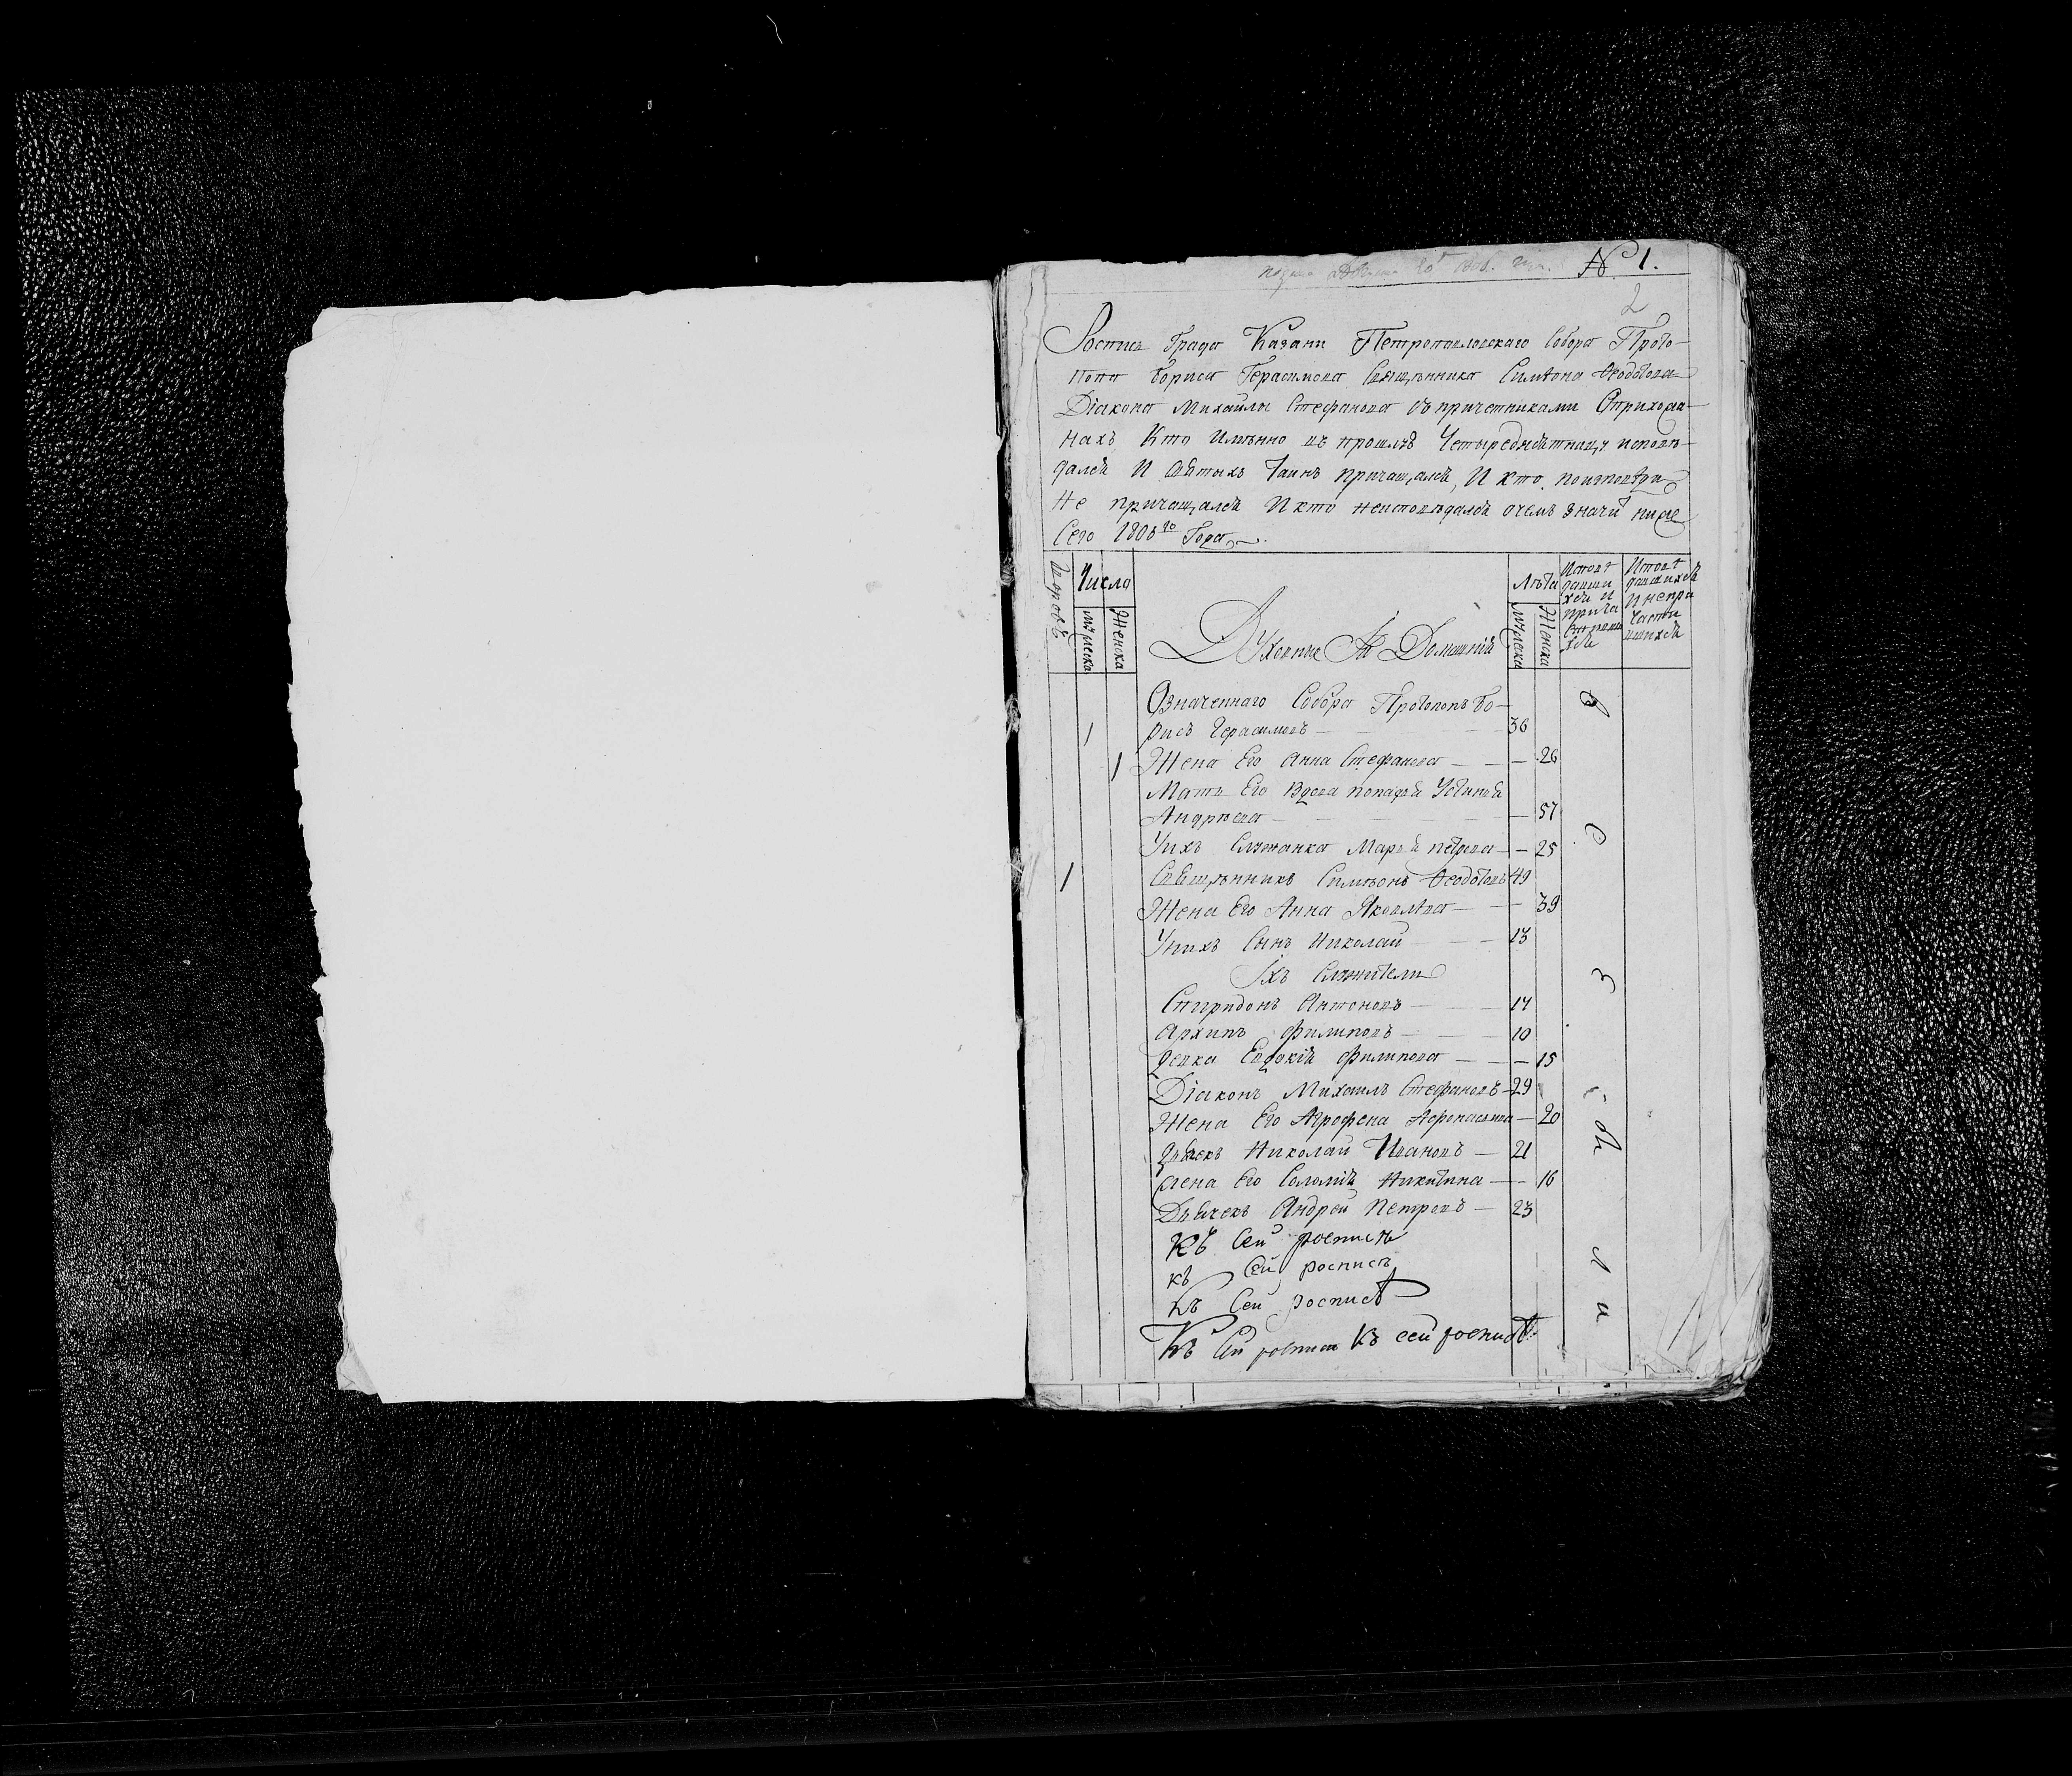 № 1.
2
Роспись Града Казани Петропавловскаго Собора Прото-
попа Бориса Герасимова Священника Симеона Ѳеодотова
Діакона Михайлы Стефанова съ причетниками Оприхожа-
нахъ Кто имянно въ прошлѣ Четыредесѣтницу исповѣ-
дался И святыхъ таинъ причащался, И кто поисповѣди
Не причащался И кто неисповѣдался очемъ значит ниже
Сего 1808го Года
Дворовъ
Число
Мужеска
Женска
Духовныя И Домашнія
Лѣта
Мужеска
Женска
Исповѣ
давши
хся и
прича
стивши
хся
Исповѣ
давшихся
И непри
части
вшихся
Означеннаго Собора Протопопъ Бо-
1 рисъ Герасимовъ — 36
1 Жена Его Анна Стефанова — — — 26
Мать Его Вдова попадья Устинья
Андреева — — 57
Уихъ Служанка Марья петрова — — 25
1 Священникъ Симеонъ Ѳеодотовъ 49
Жена Его Анна Яковлева — — 39
Унихъ Сынъ Николай — 13
Ихъ Служители
Спиридонъ Антоновъ — 14
Архипъ Филиповъ — 10
Девка Евдокія Филипова — — 15
Діаконъ Михаилъ Стефановъ — 29
Жена Его Агрофена Афонасьева — 20
Дьячекъ Николай Ивановъ — 21
Жена Его Соломія Никитина — — 16
Дьячекъ Андрей Петровъ — 23
Къ Сей росписѣ
къ Сей росписѣ
къ Сей росписѣ
Къ Сей росписи Къ сей росписѣ